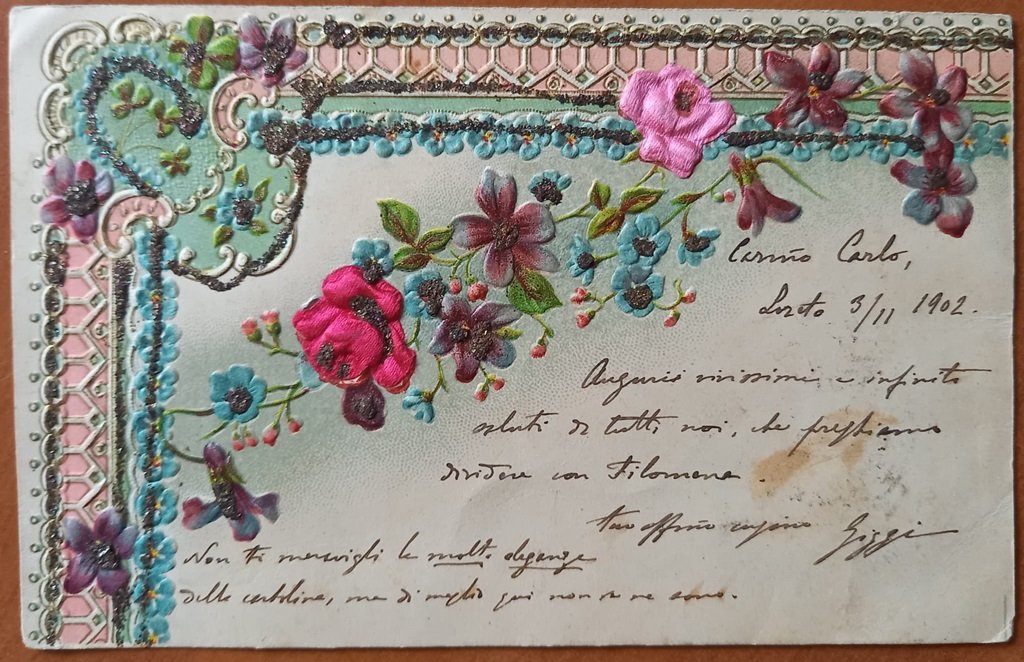 Carmo Carlo,
Loreto 3/11 1902.
Auguri vivissimi e infiniti
saluti da tutti noi, che preghiamo
dividere con Filomena.
tuo affmo cugino Giggi
Non ti meravigli la molta eleganza
della cartolina, ma di meglio qui non ve ne sono.